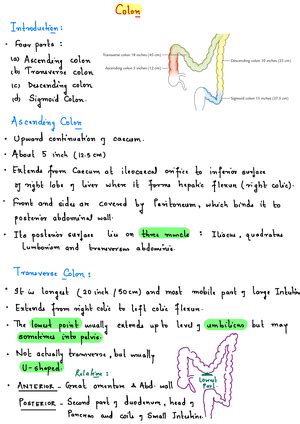 Colon
Introduction:
• Four parts:
(a) Ascending colon
(b) Transverse colon
(c) Descending colon
(d) Sigmoid Colon.
Transverse colon 18 inches (45 cm)
Ascending colon 5 inches (12 cm)
Descending colon 10 inches (25 cm)
Sigmoid colon 15 inches (37.5 cm)
Ascending Colon
• Upward continuation of caecum.
• About 5 inch (12.5 cm)
• Extends from Caecum at ileocaecal orifice to inferior surface
of right lobe of liver where it forms hepatic flexure (right colic).
• Front and sides are covered by Peritoneum, which binds it to
posterior abdominal wall.
• Its posterior surface lies on three muscle : Iliacus, quadratus
Lumborum and transversus abdominis.
Transverse Colon:
• It is longest (20 inch / 50 cm) and most mobile part of large Intestine
• Extends from right colic to left colic flexure.
• The lowest point usually extends up to level of umbilicus but may
sometimes into pelvis.
• Not actually transverse, but usually
U-shaped.
Relations:
• ANTERIOR - Great omentum & Abd. wall
POSTERIOR - Second part of duodenum, head of
Pancreas and coils of Small Intestine.
Lowest
Part